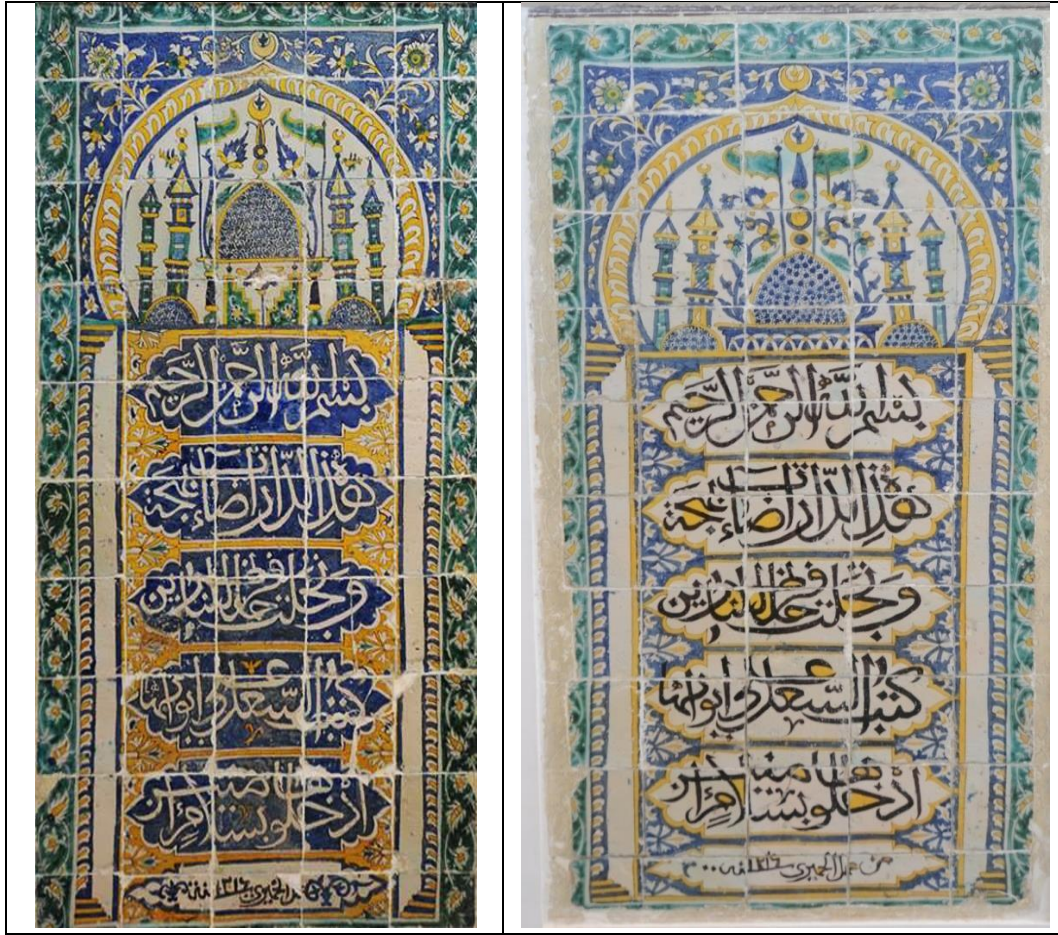 بسم الله الرحمن الرحيم
هذه الدار اضاءت بهجة
وتجلت فرحا للناظرين
كتب السعد على ابوابها
ادخلوها بسلام امنين
الخميري
بسم الله الرحمن الرحيم
هذه الدار اضاءت بهجة
وتجلت فرحا للناظرين
كتب السعد على ابوابها
ادخلوها بسلام امنين
من عمل الخميري سنة